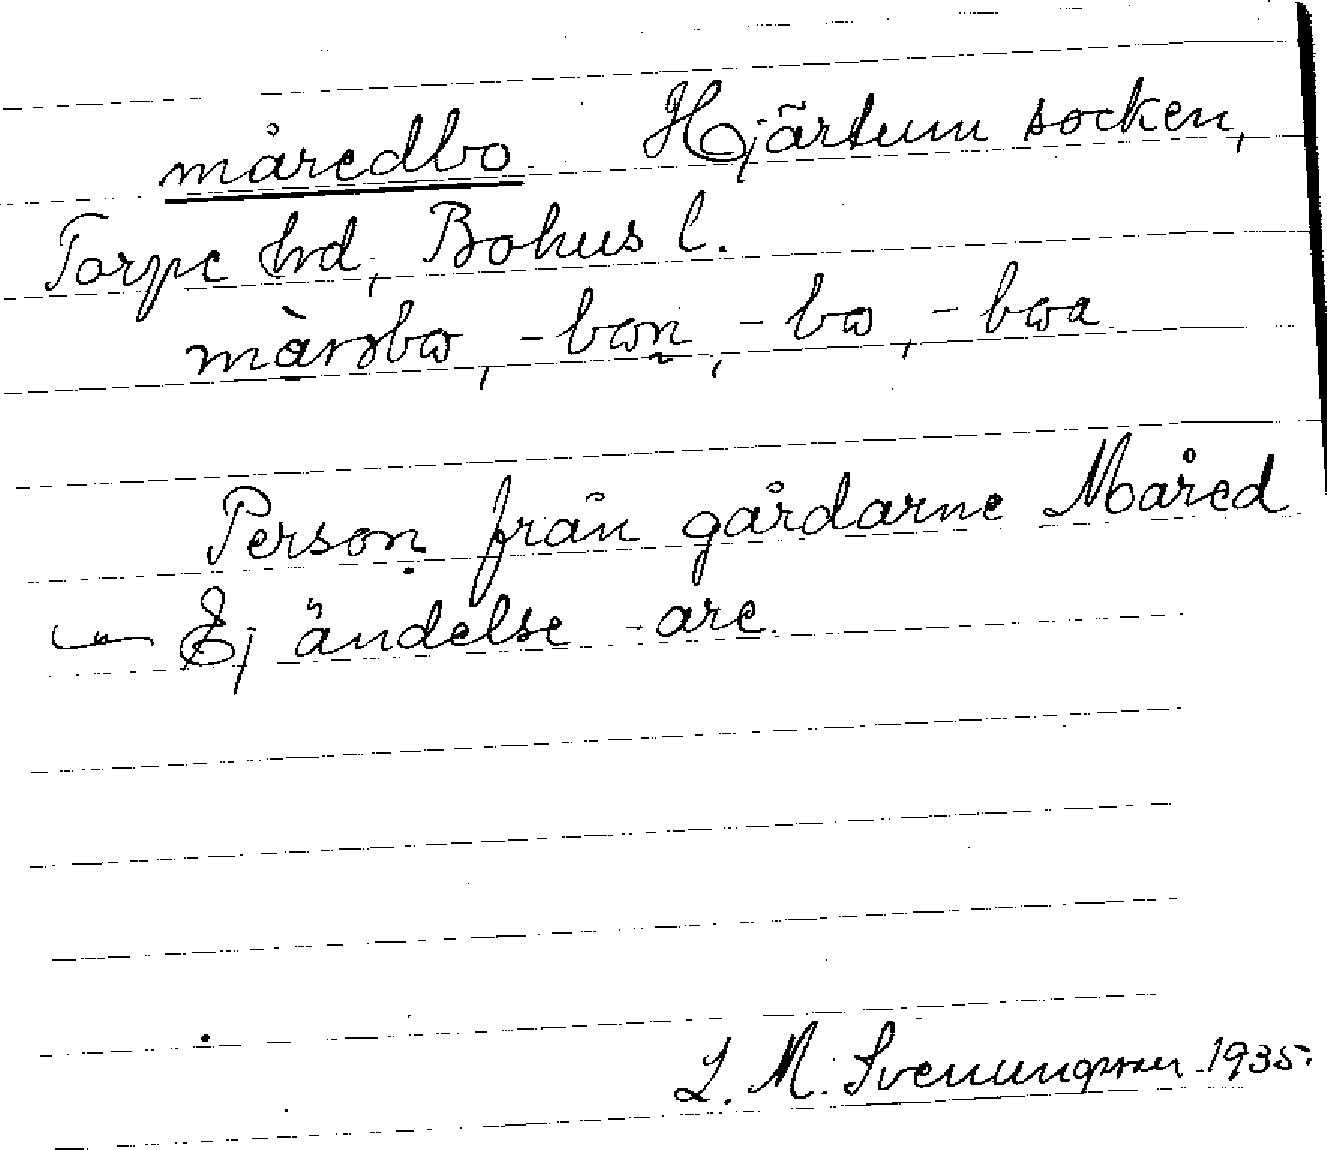 måredbo Hjärtum socken,
Torpe hd, Bohus l.
-bon, -bo, -boa
Person från gårdarne Måred
Ej ändelse -are.
L. M. Svenungsson 1935.